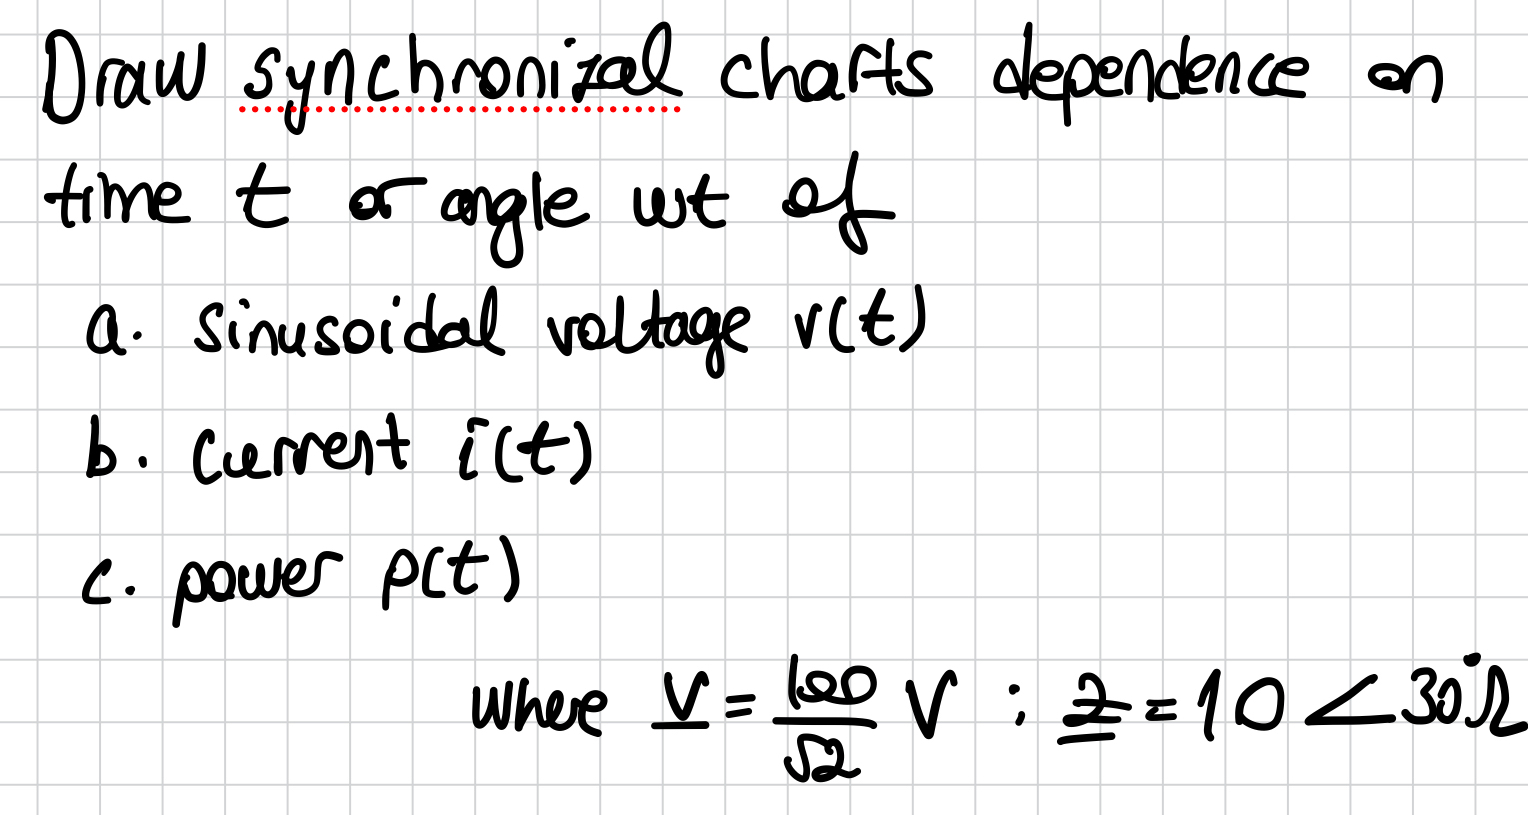 Draw synchronizal charts dependence on
time t or angle wt of
a. sinusoidal voltage v(t)
b. current i(t)
c. power p(t)
where V = 100/√2 V ; Z = 10 ∠30° Ω